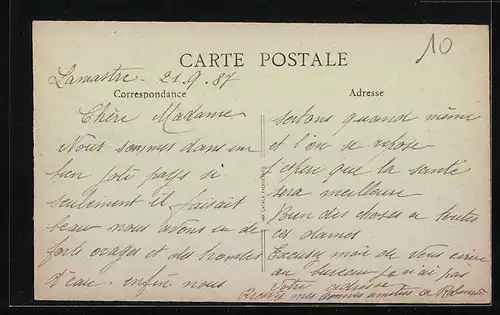 10
CARTE POSTALE
Lamastre - 21.9.37
Correspondance
Adresse
Chère Madame
Nous sommes dans un
bien joli pays si
seulement il faisait
beau nous avons eu de
forts orages et des trombes
d'eau. enfin nous
sortons quand même
et l'on se repose
j'espère que la santé
sera meilleure
Bien des choses a toutes
ces dames
Excusez moi de vous écrire
au bureau je n'ai pas
votre adresse
Recevez mes bonnes amitiés